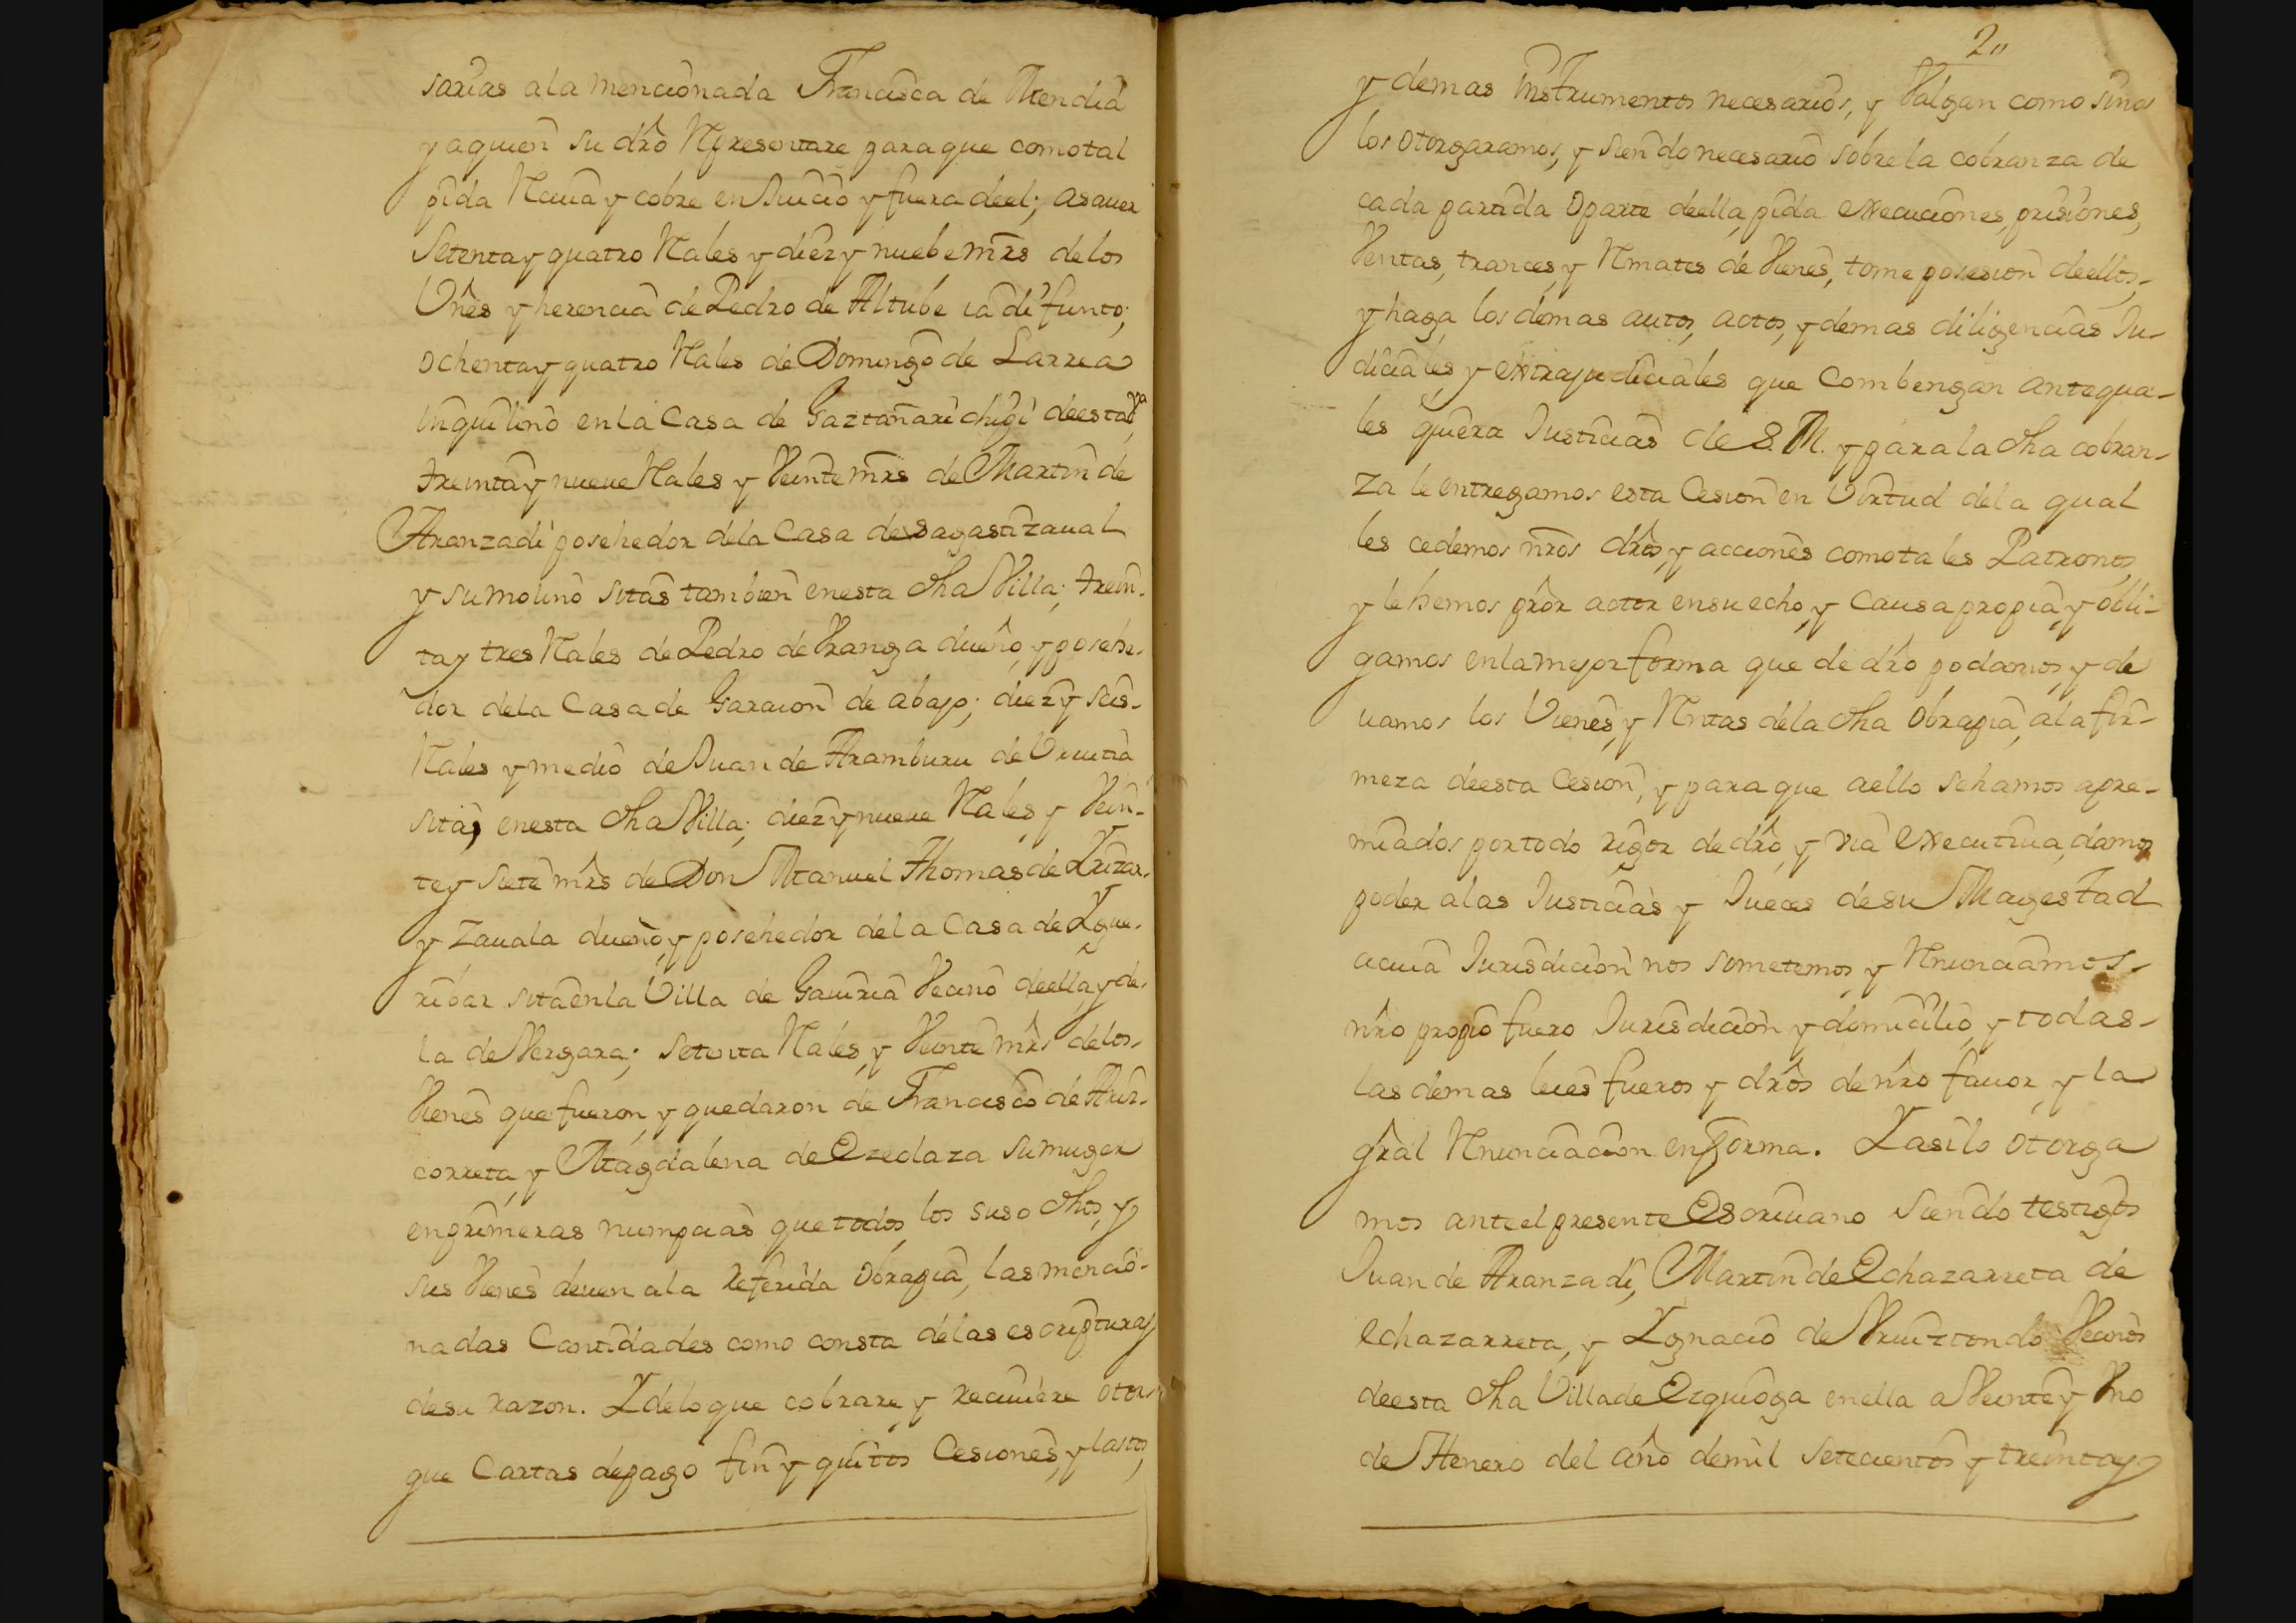 sarias ala mencionada Francisca de Mendia
y aquien su dro Representare paraque comotal
pida Reciua y cobre en Juicio y fuera deel; asauer
Setenta y quatro Rales y diez y nuebe mrs delos
Vnes y herencia de Pedro de Altube ia difunto;
ochenta y quatro Rales de Domingo de Larrea
inquilino enla Casa de Gaztañari chipi deesta Va
treinta y nueue Rales y Veinte mrs de Martin de
Aranzadi posehedor dela Casa de Sagastizaual
y su molino sitas tambien enesta dha Villa; trein-
ta y tres Rales de Pedro de Vranga dueño, y posehe-
dor dela Casa de Garacion de abajo; diez y seis-
Rales y medio de Juan de Aramburu de
sita, enesta dha Villa; diez y nueue Rales, y Vein-
te y siete mrs de Don Manuel Thomas de Yrizar-
y Zauala dueño, y posehedor dela Casa de Ygue-
ribar sita enla Villa de Gauiria Vecino deella, y de-
la de Vergara; setenta Rales, y Veinte mrs delos-
Vienes que fueron, y quedaron de Francisco de Aris-
correta, y Magdalena de Ozeolaza su muger
en primeras numpcias que todos, los suso dhos, y
sus Vienes deuen ala Referida Obrapia, las mencio-
nadas Cantidades como consta delas escripturas
desu razon. Y delo que cobrare, y reciuiere otor-
gue Cartas depago fin y quitos Cesiones, y lastos,
2,,
y demas instrumentos necesarios, y Valgan como sinos
los otorgaramos, y siendo necesario sobrela cobranza de
cada partida o parte deella, pida execuciones, prisiones,
Ventas, trances, y Rmates de Vienes, tome posesion deellos,-
y haga los demas autos, actos, y demas diligencias Ju-
diciales, y extrajudiciales que Combengan antequa-
les quiera Justicias de S. M. y para la dha cobran-
za le entregamos esta Cesion en Virtud dela qual
les cedemos nros dros, y acciones comotales Patronos,
y le hemos pror actor ensu echo, y Causa propia, y obli-
gamos enla mejor forma que de dro podamos, y de
uamos los Vienes, y Rntas dela dha Obrapia, ala fir-
meza deesta Cesion, y para que aello sehamos apre-
miados por todo rigor de dro, y via executiua, damos
poder alas Justicias y Jueces de su Magestad
acuia Jurisdicion nos sometemos, y Rnunciamos-
nro propio fuero Jurisdicion y domicilio, y todas-
las demas leies fueros y dros de nro fauor, y la
gral Rnunciacion en forma. Y asilo otorga
mos ante el presente Escriuano siendo testigos
Juan de Aranzadi, Martin de Echazarreta de
Echazarreta, y Ygnacio de Vruiztondo Vecinos
deesta dha Villa de Ezquioga enella a Veinte y Vno
de Henero del año de mil setecientos y treinta y